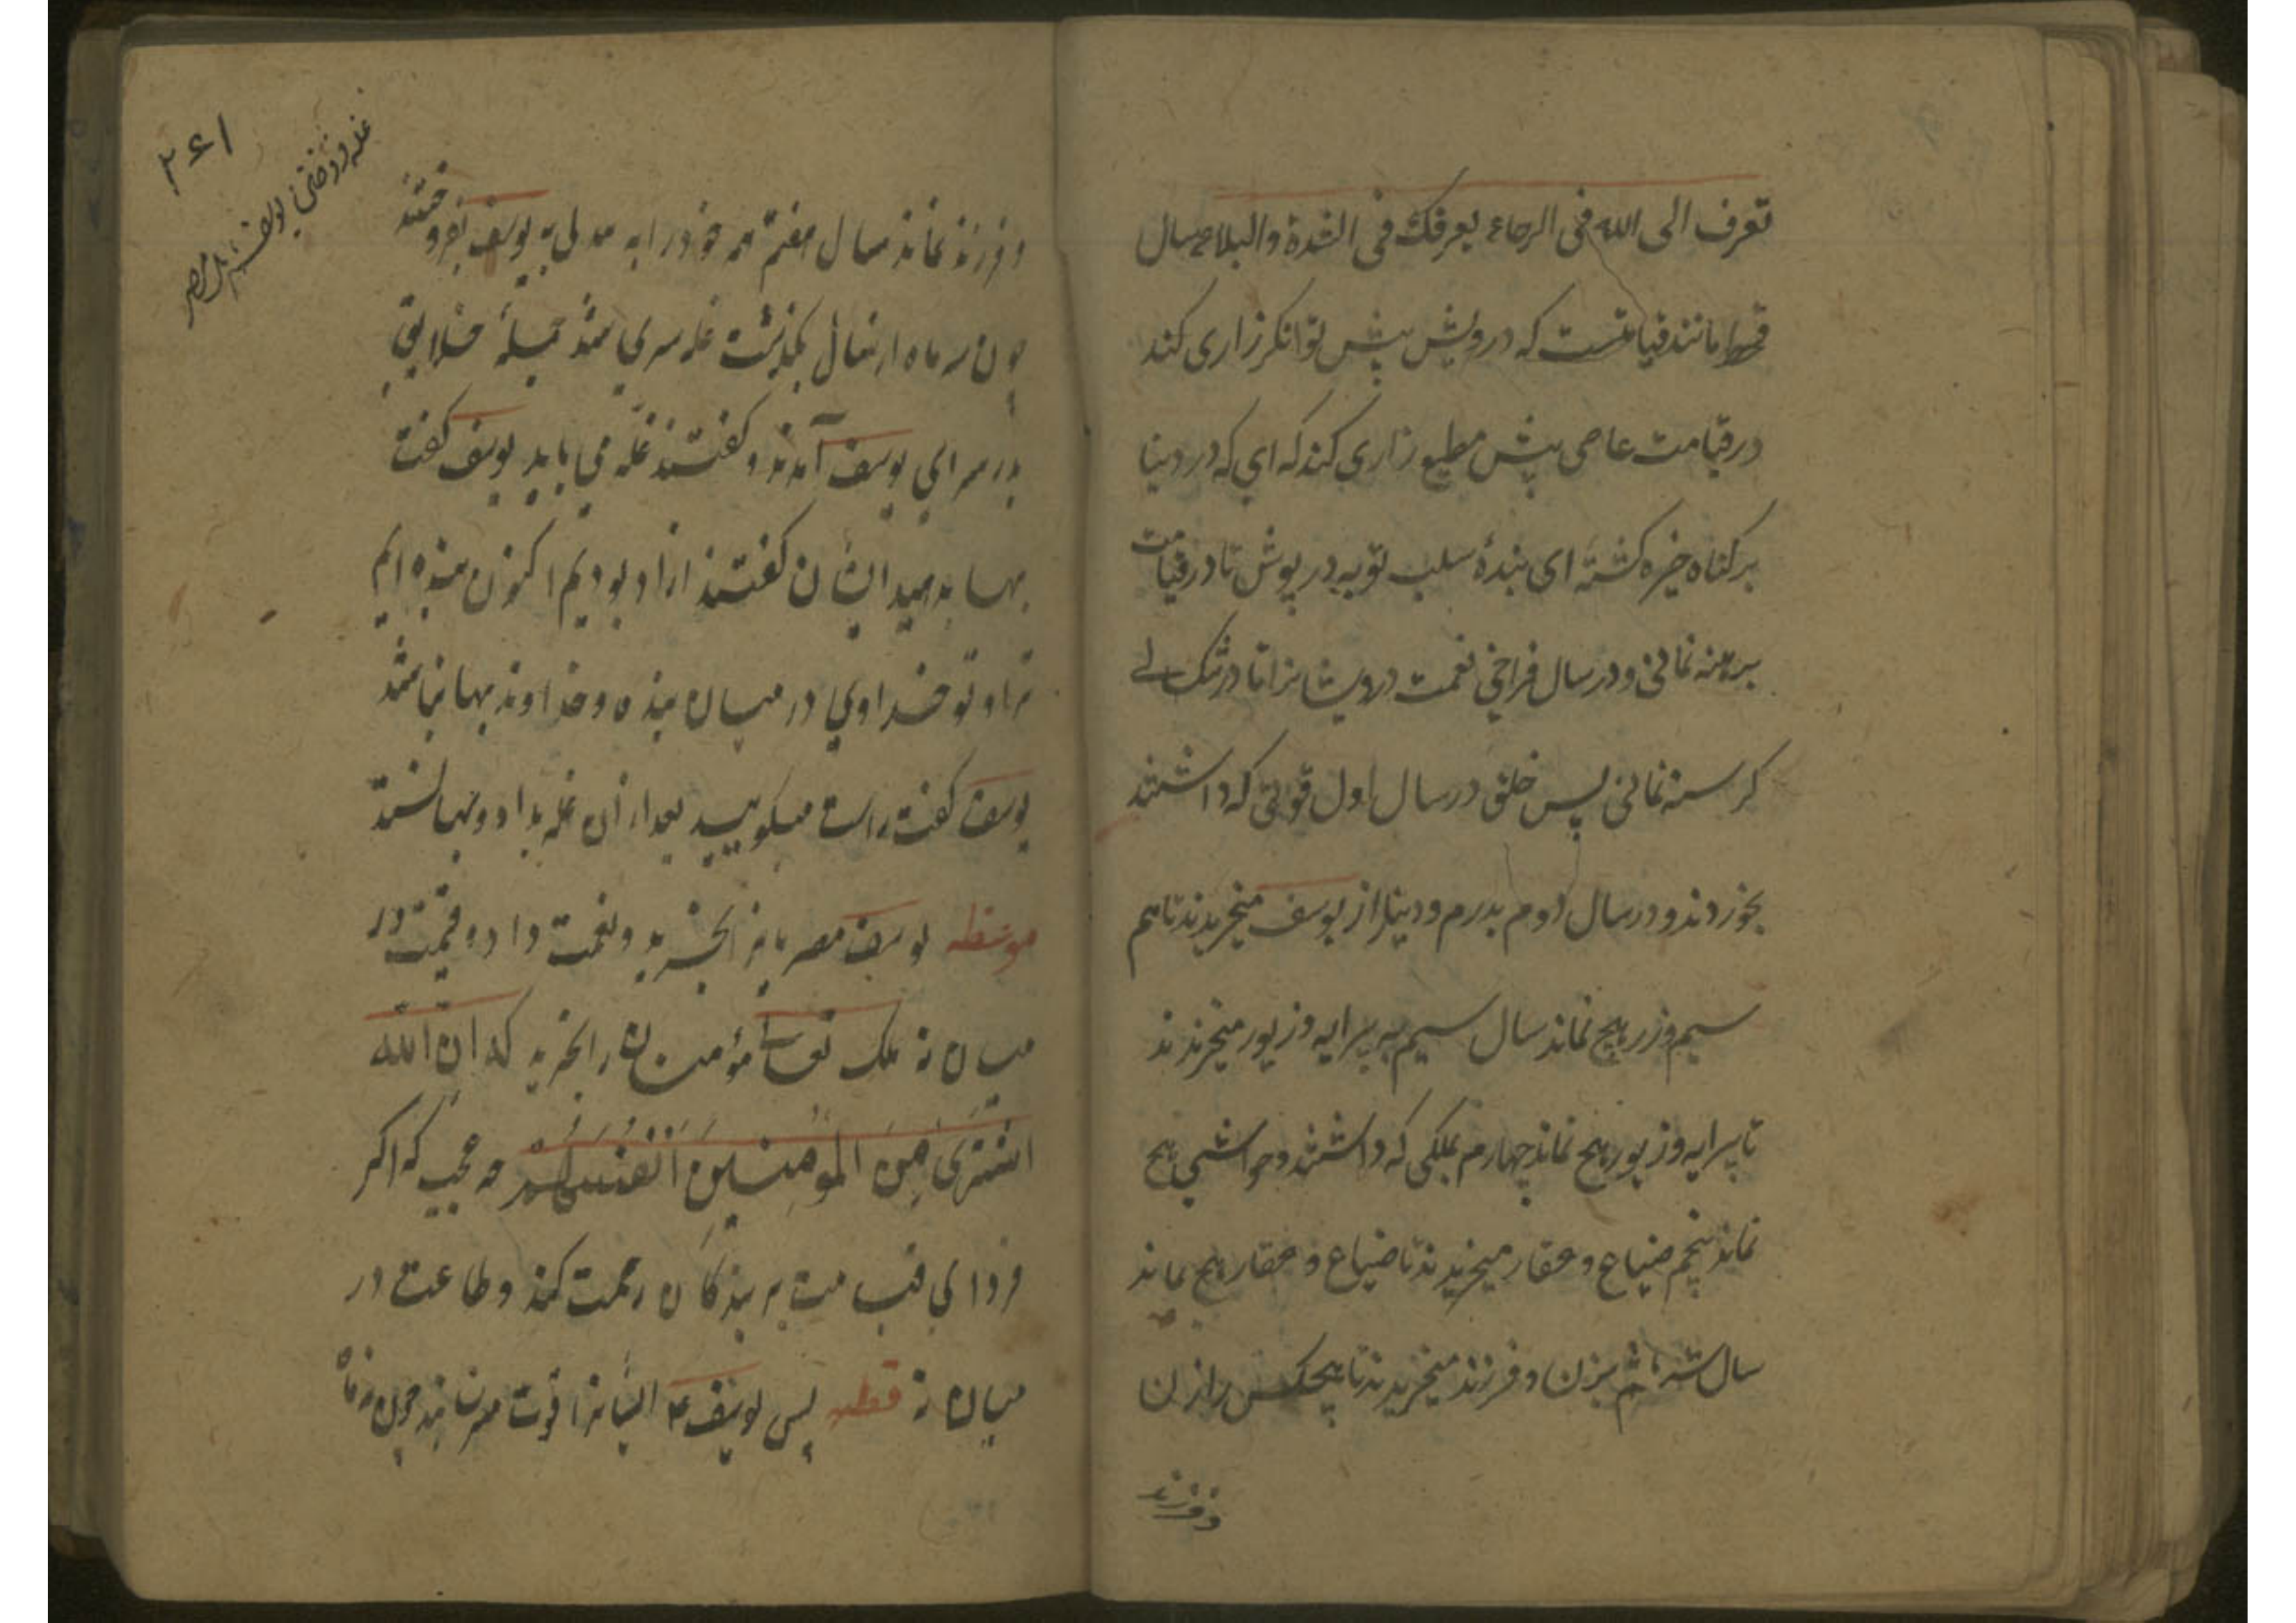 تعرف الی الله فی الرخاء یعرفک فی الشدة والبلاء سال
قحط مانند قیامتست که درویش پیش توانکر زاری کند
در قیامت عاصی پیش مطیع زاری کند که ای که در دنیا
بر کناه خیره کشتهٔ ای بندهٔ سلب توبه در پوش تا در قیامت
برهنه نمانی و در سال فراخی نعمت درویشانرا تا در تنک
کرسنه نمانی پس خلق در سال اول قوتی که داشتند
بخوردند و در سال دوم بدرم و دینار از یوسف میخریدند تا هم
سیم و زر هیچ نماند سال سیم به پیرایه و زیور میخریدند
تا پیرایه و زیور هیچ نماند چهارم بملکی که داشتند و مواشی هیچ
نماند پنجم ضیاع و عقار میخریدند تا ضیاع و عقار هیچ نماند
سال ششم بزن و فرزند میخریدند تا هیچکس را زن
و فرزند
۲۶۱
غله فروختن یوسف باهل مصر
و فرزند نماند سال هفتم همه خود را به یوسف بفروختند
چون سه ماه از سال بکذشت غله سپری شد جمله خلایق
بدر سرای یوسف آمدند و کفتند غله می باید یوسف کفت
بها بدهید ایشان کفتند ازاد بودیم اکنون بنده ایم
ترا و تو خداوی در میان بنده و خداوند بها نباشد
یوسف کفت راست میکویید بعد از آن غله بداد و بها نستد
موعظه یوسف مصریانرا بخرید و نعمت داد و قیمت در
میان نه ملک تعالی مؤمنان را بخرید که ان الله
اشتری من المؤمنین انفسهم چه عجب که اکر
فردای قیامت بر بندکان رحمت کند و طاعت در
میان نه قصه پس یوسف ع ایشانرا قوت